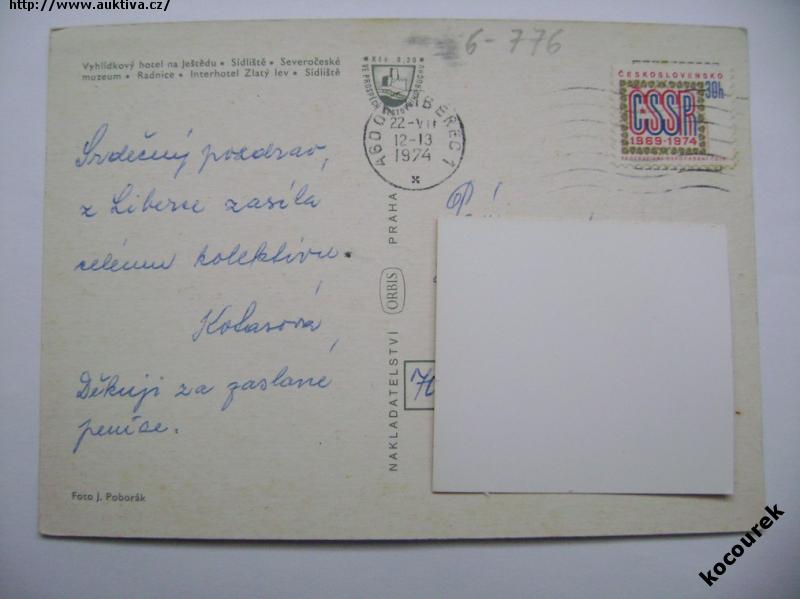 http://www.auktiva.cz/
6-776
Vyhlídkový hotel na Ještědu • Sídliště • Severočeské
muzeum • Radnice • Interhotel Zlatý lev • Sídliště
ČESKOSLOVENSKO
30h
ČSSR
1969-1974
22-VII
12-13
1974
Srdečný pozdrav,
z Liberce zasílá
celému kolektivu.
Kolasová
Děkuji za zaslané
peníze.
NAKLADATELSTVÍ ORBIS PRAHA
Foto J. Poborák
kocourek